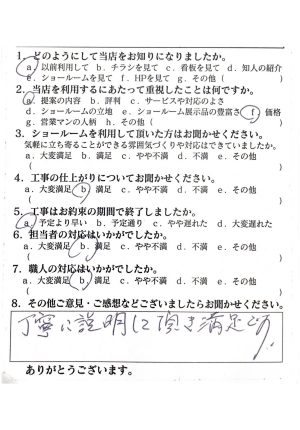 1. どのようにして当店をお知りになりましたか。
a. 以前利用して b. チラシを見て c. 看板を見て d. 知人の紹介
e. ショールームを見て f. HPを見て g. その他 ( )
2. 当店を利用するにあたって重視したことは何ですか。
a. 提案の内容 b. 評判 c. サービスや対応のよさ
d. ショールームの立地 e. ショールーム展示品の豊富さ f. 価格
g. 営業マンの人柄 h. その他 ( )
3. ショールームを利用して頂いた方はお聞かせください。
気軽に立ち寄ることができる雰囲気づくりや対応はできていましたか。
a. 大変満足 b. 満足 c. やや不満 d. 不満 e. その他
( )
4. 工事の仕上がりについてお聞かせください。
a. 大変満足 b. 満足 c. やや不満 d. 不満 e. その他
( )
5. 工事はお約束の期間で終了しましたか。
a. 予定より早い b. 予定通り c. やや遅れた d. 大変遅れた
6. 担当者の対応はいかがでしたか。
a. 大変満足 b. 満足 c. やや不満 d. 不満 e. その他
( )
7. 職人の対応はいかがでしたか。
a. 大変満足 b. 満足 c. やや不満 d. 不満 e. その他
( )
8. その他ご意見・ご感想などございましたらお聞かせください。
丁寧に説明して頂き満足です。
ありがとうございます。